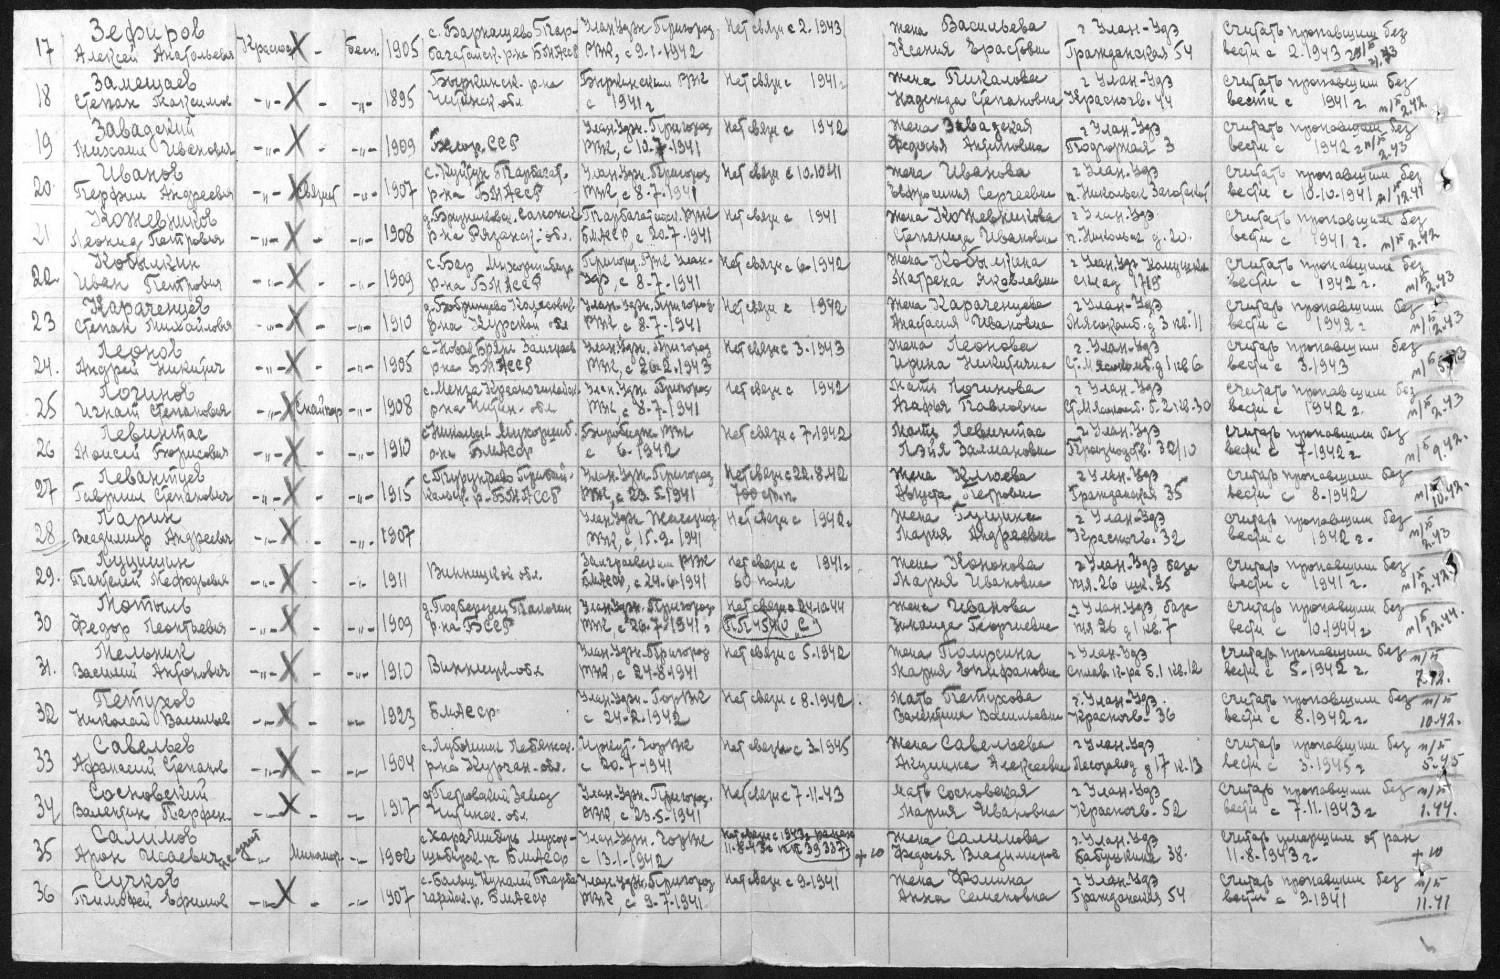 17 Зефиров Алексей Анатольевич Красноа - бесп. 1905 с. Барнашево Тарбагатайск. р-на БМАССР Улан-Удэн. Пригород. РВК, с 9-1-1942 Нет связи с 2.1943 жена Васильева Ксения Ерастовн г. Улан-Удэ Гражданская 54 Считать пропавшим без вести с 2.1943
18 Замещаев Степан Максимов -„- - -„- 1895 Быркинск. р-на Читинск обл Быркинским РВК с 1941 г Нет связи с 1941 г жена Пикалова Надежда Степановна г Улан-Удэ Красногв. 44 считать пропавшим без вести с 1941 г. п/п 2.42
19 Завадский Михаил Иванович -„- - -„- 1909 Белор. ССР Улан-Удэн. Пригород РВК, с 10-7-1941 Нет связи с 1942 жена Завадская Федосья Антиповна г. Улан-Удэ Подгорная 3 Считать пропавшим без вести с 1942 г п/п 2.43
20 Иванов Перфил Андреевич -„- связист -„- 1907 с. Куйтун Тарбагат. р-на БМАССР Улан-Удэн. Пригород РВК, с 8-7-1941 Нет связи с 10.10.41 жена Иванова Евфросинья Сергеевн г. Улан-Удэ п. Никольск Считать пропавшим без вести с 10-10-1941 п/п 12.41
21 Кожевников Леонид Петрович -„- - -„- 1908 р-на Рязанск. обл. Тарбагатайск. РВК БМАССР, с 20-7-1941 Нет связи с 1941 жена Кожевникова Степанида Ивановн г Улан-Удэ п. Никольск д-20. Считать пропавшим без вести с 1941 г. п/п 2.42
22 Кобылкин Иван Петрович -„- - -„- 1909 с. Бар Мухоршибир р-на БМАССР Пригород. РВК Улан-Удэ, с 8-7-1941 Нет связи с 6-1942 жена Кобылкина Матрена Яковлевн г Улан-Удэ склад 1719 Считать пропавшим без вести с 1942 г. п/п 2.43
23 Караченцев Степан Михайлович -„- - -„- 1910 р-на Курской обл Улан-Удэн. Пригород РВК, с 8-7-1941 Нет связи с 1942 жена Караченцева Анастасия Ивановн г Улан-Удэ Мясокомб. д 3 кв. 11 Считать пропавшим без вести с 1942 г п/п 2.43
24. Леонов Андрей Никитич -„- - -„- 1905 с. Новая Брянь Заиграев р-на БМАССР Улан-Удэн. Пригород РВК, с 26-2-1943 Нет связи с 3-1943 жена Леонова Ирина Никитична г. Улан-Удэ Ст. Мясокомб. д 1 кв 6 Считать пропавшим без вести с 3.1943 п/п
25 Логинов Игнат Степанович -„- снайпер -„- 1908 с. Менза Красночикойск р-на Читин. обл Улан-Удэн. Пригород РВК, с 8-7-1941 Нет связи с 1942 Мать Логинова Агафья Павловн г. Улан-Удэ Ст. Мясокомб. б. 2 кв. 30 Считать пропавшим без вести с 1942 г. п/п 2.43
26 Левинтас Моисей Борисович -„- - -„- 1910 с. Никольск Мухоршиб. р-на БМАССР Биробидж РВК с 6-1942 Нет связи с 7-1942 Мать Левинтас Лэйя Залмановн г. Улан-Удэ Производств. 30/10 Считать пропавшим без вести с 7-1942 г п/п 9.42.
27 Левантуев Гавриил Степанович -„- - -„- 1915 с. Турунтаево Прибайкальск. р. БМАССР Улан-Удэн. Пригород РВК, с 23.5-1941 Нет связи с 22.8.42 700 стр. п. Жена Клюева Августа Петровн г. Улан-Удэ Гражданская 35 Считать пропавшим без вести с 8-1942 п/п 10.42.
28 Ларин Владимир Андреевич -„- - -„- 1907 Улан-Удэн. Железнод РВК, с 15.9-1941 Нет связи с 1942 жена Гущина Мария Андреевн г Улан-Удэ Красногв. 32 Считать пропавшим без вести с 1942 г. п/п 2.43
29. Лущишин Пантелей Мефодьевич -„- - -„- 1911 Винницкой обл. Заиграевским РВК БМАССР, с 24-6-1941 Нет связи с 1941 г. 60 полк жена Кононова Мария Ивановн г. Улан-Удэ база тя. 26 Считать пропавшим без вести с 1941 г. п/п 2.42
30 Мотыль Федор Леонтьевич -„- - -„- 1909 д. Подберезец Толочин р-на БССР Улан-Удэн. Пригород РВК, с 26-7-1941 г Нет связи с 24-10-44 П.П. 45940 „С“ жена Иванова Зинаида Георгиевн г Улан-Удэ база тя 26 д 1 кв. 7 Считать пропавшим без вести с 10-1944 г п/п 12.44.
31. Мельник Василий Антонович -„- - -„- 1910 Винницк-обл Улан-Удэн. Пригород РВК, с 24-8-1941 Нет связи с 5.1942 жена Полуєина Мария Епифановн г. Улан-Удэ б. 1 кв. 12 Считать пропавшим без вести с 5-1942 г. п/п 7.42.
32 Петухов Николай Васильев -„- - -„- 1923 БМАССР Улан-Удэн. ГорВК с 24-2-1942 Нет связи с 8.1942 Мать Петухова Валентина Васильевн г. Улан-Удэ. Красногв. 36 Считать пропавшим без вести с 8.1942 г. п/п 10.42.
33 Савельев Афанасий Степанов -„- - -„- 1904 с. Лубошин Лебяжск. р-на Курган. обл. Иркут. ГорВК с 20-7-1941 Нет связи с 3-1945 Жена Савельева Акулина Алексеевн г Улан-Удэ Лесозавод д 17 к-13 Считать пропавшим без вести с 3-1945 г п/п 5-45
34 Сосновский Валентин Парфен. -„- - -„- 1917 д. Петровский Завод Читинск. обл. Улан-Удэн. Пригород. РВК, с 23.5-1941 Нет связи с 7-11-43 Мать Сосновская Мария Ивановна г. Улан-Удэ Красногв. 52 Считать пропавшим без вести с 7-11-1943 г п/п 1.44.
35 Салимов Арон Исаевич -„- Миномет. -„- 1902 с. Хара-Шибирь Мухоршибирск р. БМАССР Улан-Удэн. ГорВК с 13.1-1942 Нет связи с 1943 г ранен 11-8-43 г пп 39337 жена Салимова Федосья Владимиров г. Улан-Удэ Бабушкина 38. Считать умершим от ран 11-8-1943 г.
36 Сучков Тимофей Ефимов -„- - -„- 1907 с. Больш. Куналей Тарбагатайск. р. БМАССР Улан-Удэн. Пригород РВК, с 9-7-1941 Нет связи с 9-1941 жена Фомина Анна Семеновна г. Улан-Удэ Гражданская 54 Считать пропавшим без вести с 9-1941 п/п 11.41